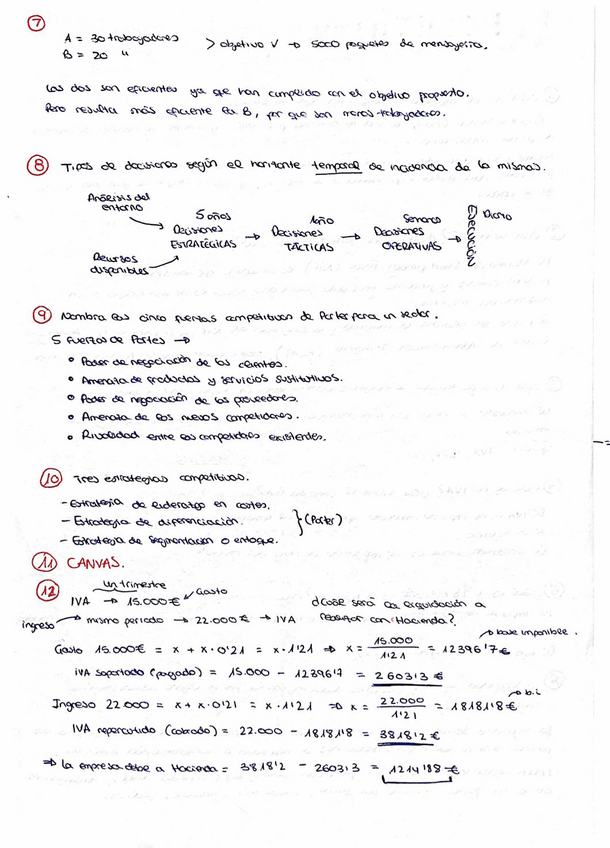 7
A = 30 trabajadores
B = 20 "
> objetivo V → 5000 paquetes de mensajería.
Las dos son eficientes ya que han cumplido con el objetivo propuesto.
Pero resulta más eficiente la B, por que son menos trabajadores.
8 Tipos de decisiones según el horizonte temporal de incidencia de la mismas.
Análisis del entorno
Recursos disponibles
5 años
Decisiones ESTRATÉGICAS
→
1 año
Decisiones TÁCTICAS
→
Semanas
Decisiones OPERATIVAS
→
EJECUCIÓN
Diario
9 Nombra las cinco fuerzas competitivas de Porter para un sector.
5 Fuerzas de Porter →
• Poder de negociación de los clientes.
• Amenaza de productos y servicios sustitutivos.
• Poder de negociación de los proveedores.
• Amenaza de los nuevos competidores.
• Rivalidad entre los competidores existentes.
10 Tres estrategias competitivas.
- Estrategia de liderazgo en costes.
- Estrategia de diferenciación.
- Estrategia de segmentación o enfoque.
} (Porter)
11 CANVAS.
12
un trimestre
IVA → 15.000€ Gasto
ingreso → mismo periodo → 22.000€ → IVA
¿Cuál será la liquidación a realizar con Hacienda?
Gasto 15.000€ = x + x·0'21 = x·1'21 ⇒ x = 15.000 / 1'21 = 12396'7€ → base imponible.
IVA soportado (pagado) = 15.000 - 12396'7 = 2603'3 €
Ingreso 22.000 = x + x·0'21 = x·1'21 ⇒ x = 22.000 / 1'21 = 18181'8€ → b.i
IVA repercutido (cobrado) = 22.000 - 18181'8 = 3818'2 €
⇒ La empresa debe a Hacienda = 3818'2 - 2603'3 = 1214'88 €